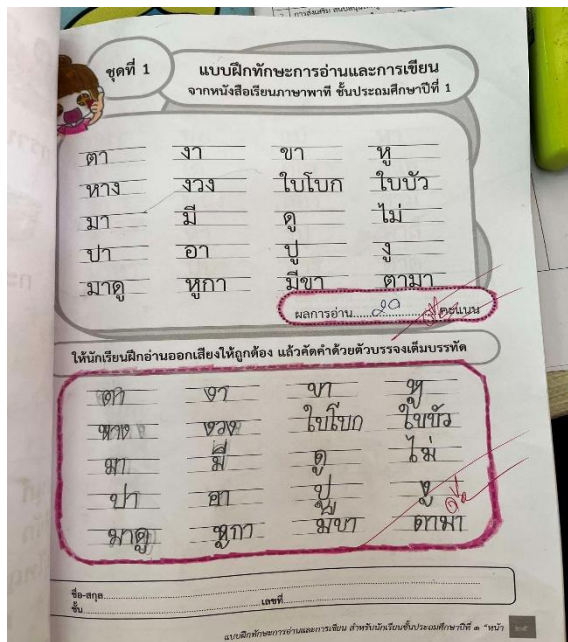 ชุดที่ 1
แบบฝึกทักษะการอ่านและการเขียน
จากหนังสือเรียนภาษาพาที ชั้นประถมศึกษาปีที่ 1
ตา งา ขา หู
หาง งวง ใบโบก ใบบัว
มา มี ดู ไม่
ปา อา ปู งู
มาดู หูกา มีขา ตามา
ผลการอ่าน.....๒๐.....คะแนน
ให้นักเรียนฝึกอ่านออกเสียงให้ถูกต้อง แล้วคัดคำด้วยตัวบรรจงเต็มบรรทัด
ตา งา ขา หู
หาง งวง ใบโบก ใบบัว
มา มี ดู ไม่
ปา อา ปู งู
มาดู หูกา มีขา ตามา
ชื่อ-สกุล
ชั้น เลขที่
แบบฝึกทักษะการอ่านและการเขียน สำหรับนักเรียนชั้นประถมศึกษาปีที่ ๑ หน้า